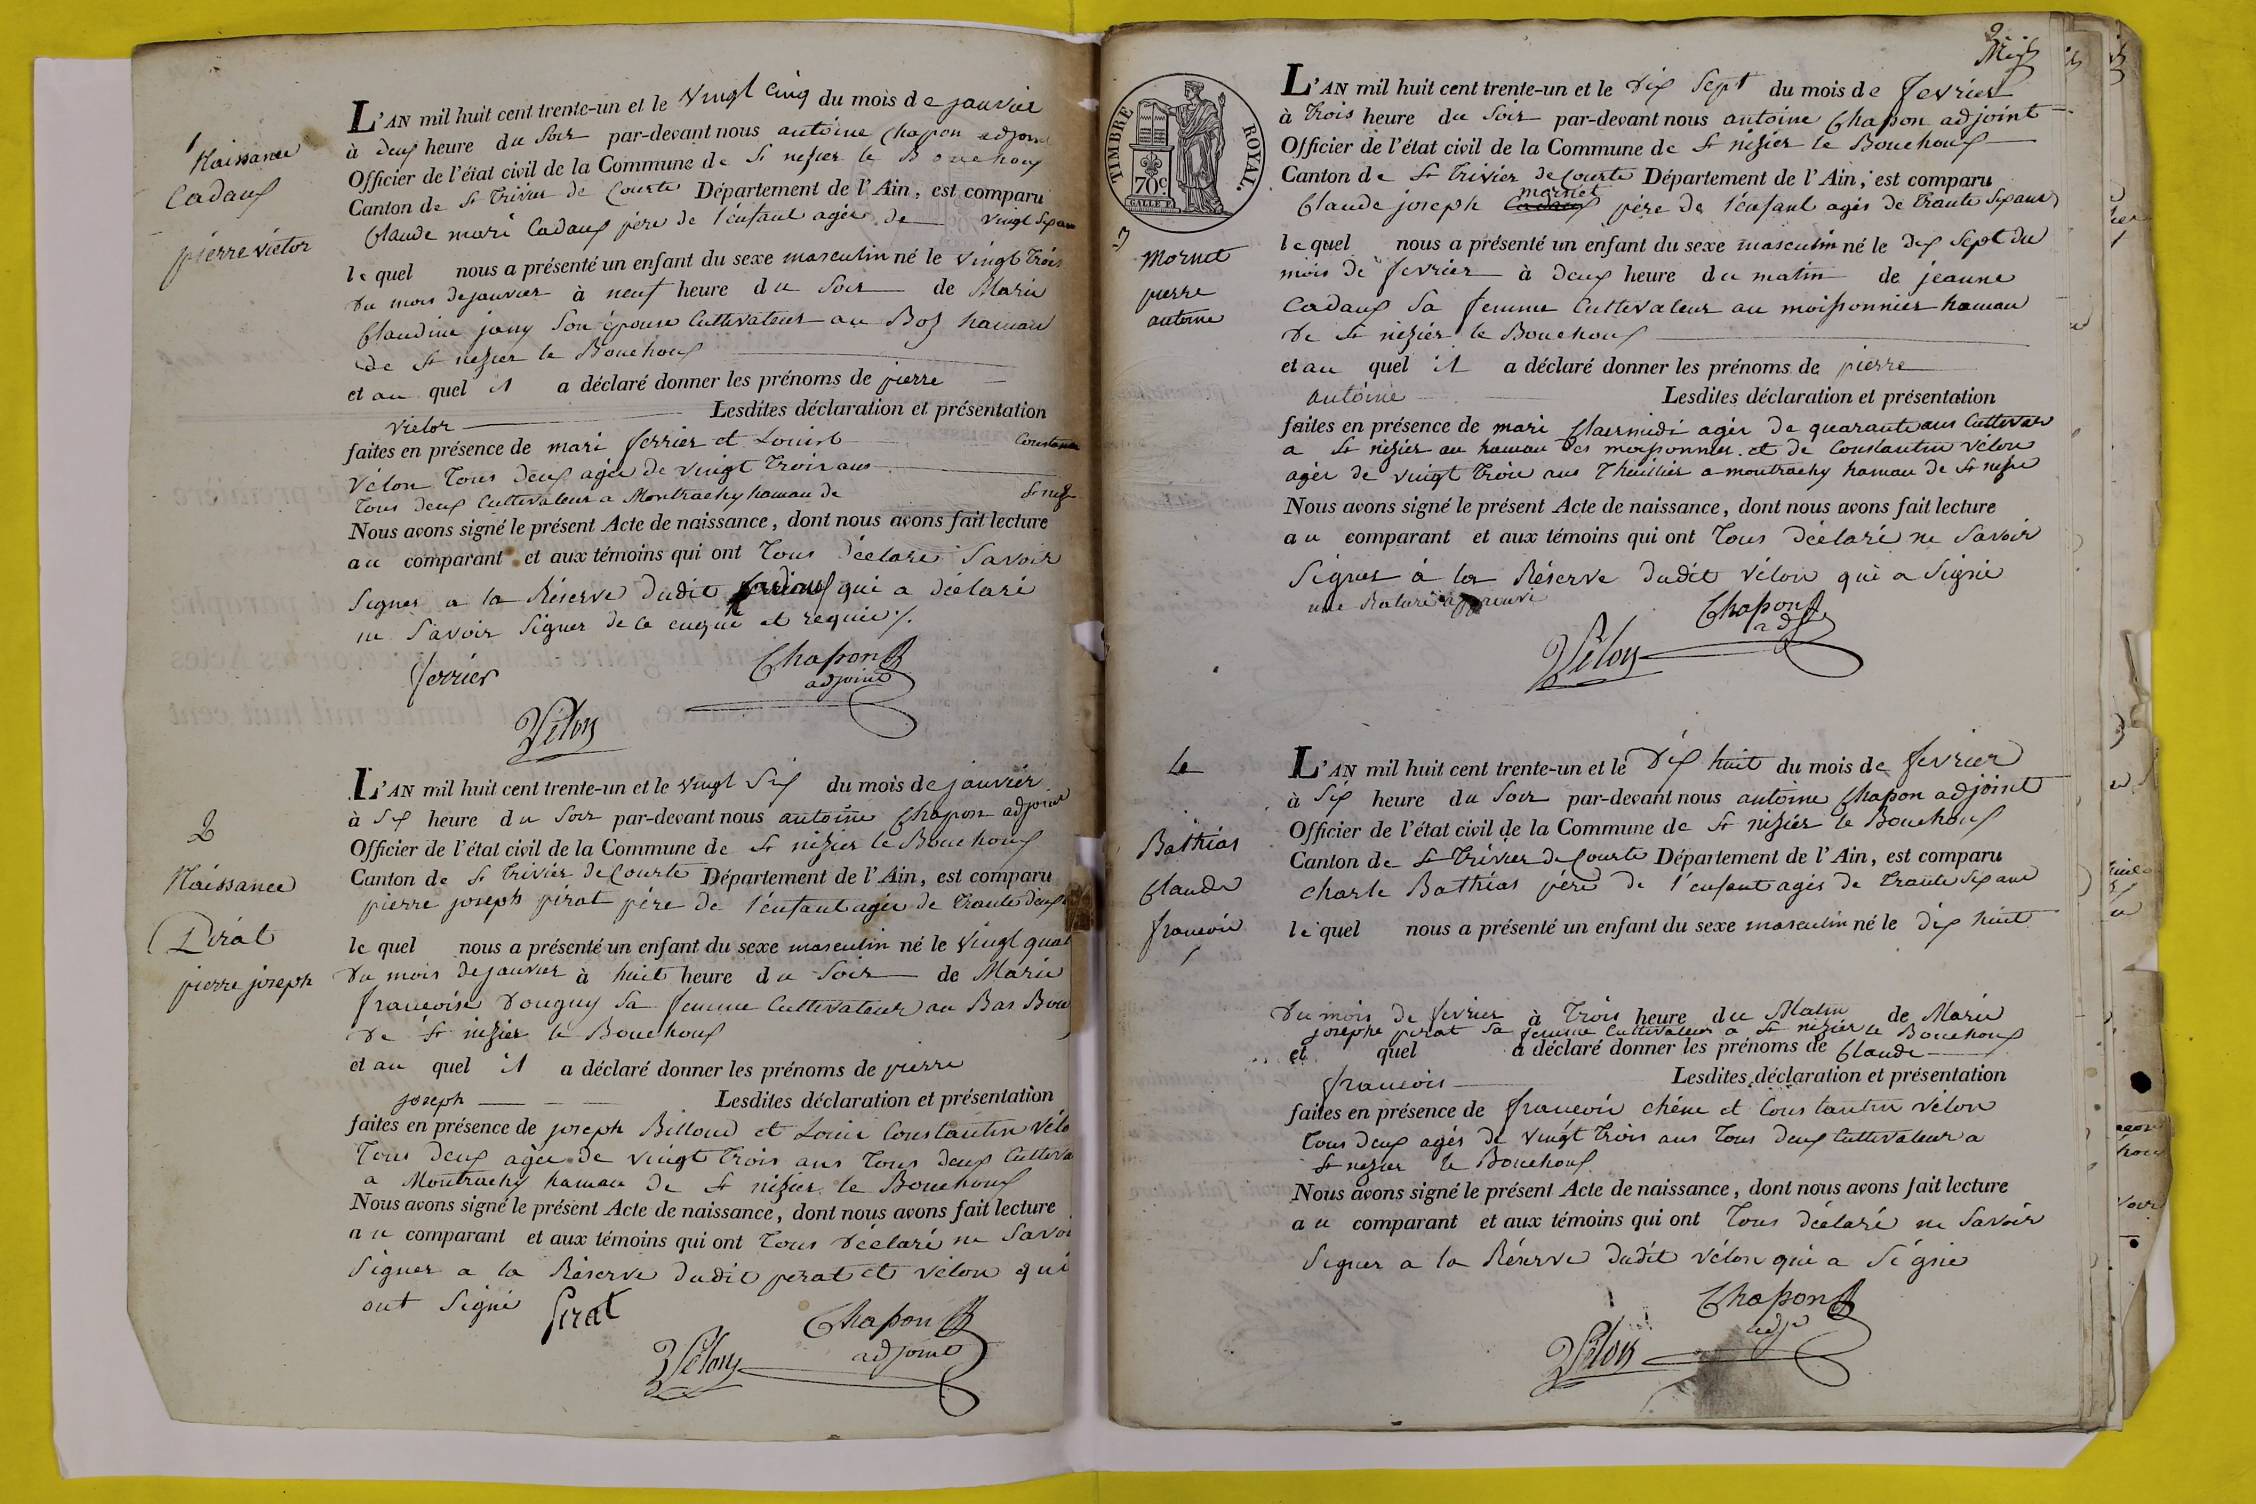 1
Naissance
Cadaux
pierre victor
L'AN mil huit cent trente-un et le vingt cinq du mois de janvier
à deux heure du soir par-devant nous antoine Chapon adjoint
Officier de l'état civil de la Commune de St nizier le Bouchoux
Canton de St Trivier de Courte Département de l'Ain, est comparu
Claude mari Cadaux père de l'enfant agée de vingt six ans
le quel nous a présenté un enfant du sexe masculin né le vingt trois
du mois de janvier à neuf heure du soir de Marie
Claudine jany son épouse Cultivateur au Boz hamau
de St nezier le Bouchoux
et au quel il a déclaré donner les prénoms de pierre
victor Lesdites déclaration et présentation
faites en présence de mari ferrier et Louis Constantin
Vélon tous deux agée de vingt trois ans
tous deux Cultivateur a Montrachy hamau de St nez
Nous avons signé le présent Acte de naissance, dont nous avons fait lecture
au comparant et aux témoins qui ont tous déclaré savoir
signer a la Réserve dudit cadaux qui a déclaré
ne savoir signer de ce enquie et requie ./.
ferrier
Chapon
adjoint
Vélon
2
Naissance
Pirat
pierre joseph
L'AN mil huit cent trente-un et le vingt six du mois de janvier
à six heure du soir par-devant nous antoine Chapon adjoint
Officier de l'état civil de la Commune de St nizier le Bouchoux
Canton de St Trivier de Courte Département de l'Ain, est comparu
pierre joseph pirat père de l'enfant agée de trante deux
le quel nous a présenté un enfant du sexe masculin né le vingt quat
du mois de janvier à huit heure du soir de Marie
francoise Douguy sa femme Cultivateur au Bas Bou
de St nizier le Bouchoux
et au quel il a déclaré donner les prénoms de pierre
joseph Lesdites déclaration et présentation
faites en présence de joseph Billoud et Louis Constantin vélo
tous deux agée de vingt trois ans tous deux Cultiva
a Montrachy hamau de St nizier le Bouchoux
Nous avons signé le présent Acte de naissance, dont nous avons fait lecture
au comparant et aux témoins qui ont tous déclaré ne savoi
signer a la Réserve dudit perat et vélon qui
ont signé
Pirat
Chapon
adjoint
Vélon
2
TIMBRE ROYAL.
70c
3
Mornet
pierre
antoine
L'AN mil huit cent trente-un et le dix sept du mois de fevrier
à trois heure du soir par-devant nous antoine Chapon adjoint
Officier de l'état civil de la Commune de St nizier le Bouchoux
Canton de St Trivier de Courte Département de l'Ain, est comparu
mornet
Claude joseph Cadaux père de l'enfant agés de trante six ans
le quel nous a présenté un enfant du sexe masculin né le dix sept du
mois de fevrier à deux heure du matin de jeanne
Cadaux sa femme Cultivateur au moissonnier hamau
de St nizier le Bouchoux
et au quel il a déclaré donner les prénoms de pierre
antoine Lesdites déclaration et présentation
faites en présence de mari Clairmidi agér de quarante ans Cultivateur
a St nizier au hamau des moissonnier et de Constantin vélon
agér de vingt trois ans Thuillier a montrachy hamau de St nizie
Nous avons signé le présent Acte de naissance, dont nous avons fait lecture
au comparant et aux témoins qui ont tous déclaré ne savoir
signer à la Réserve dudit vélon qui a signé
une Rature approuvé
Chapon
adj
Vélon
4
Bathias
Claude
francois
L'AN mil huit cent trente-un et le dix huit du mois de fevrier
à six heure du soir par-devant nous antoine Chapon adjoint
Officier de l'état civil de la Commune de St nizier le Bouchoux
Canton de St Trivier de Courte Département de l'Ain, est comparu
charle Bathias père de l'enfant agés de trante six ans
le quel nous a présenté un enfant du sexe masculin né le dix huit
du mois de fevrier à trois heure du Matin de Marie
josephe pirat sa femme Cultivateur a St nizier le Bouchoux
et quel a déclaré donner les prénoms de Claude
francois Lesdites déclaration et présentation
faites en présence de francois chêne et Constantin vélon
tous deux agés de vingt trois ans tous deux Cultivateur a
St nezier le Bouchoux
Nous avons signé le présent Acte de naissance, dont nous avons fait lecture
au comparant et aux témoins qui ont tous déclaré ne savoir
signer a la Réserve dudit vélon qui a signé
Chapon
adjt
Vélon